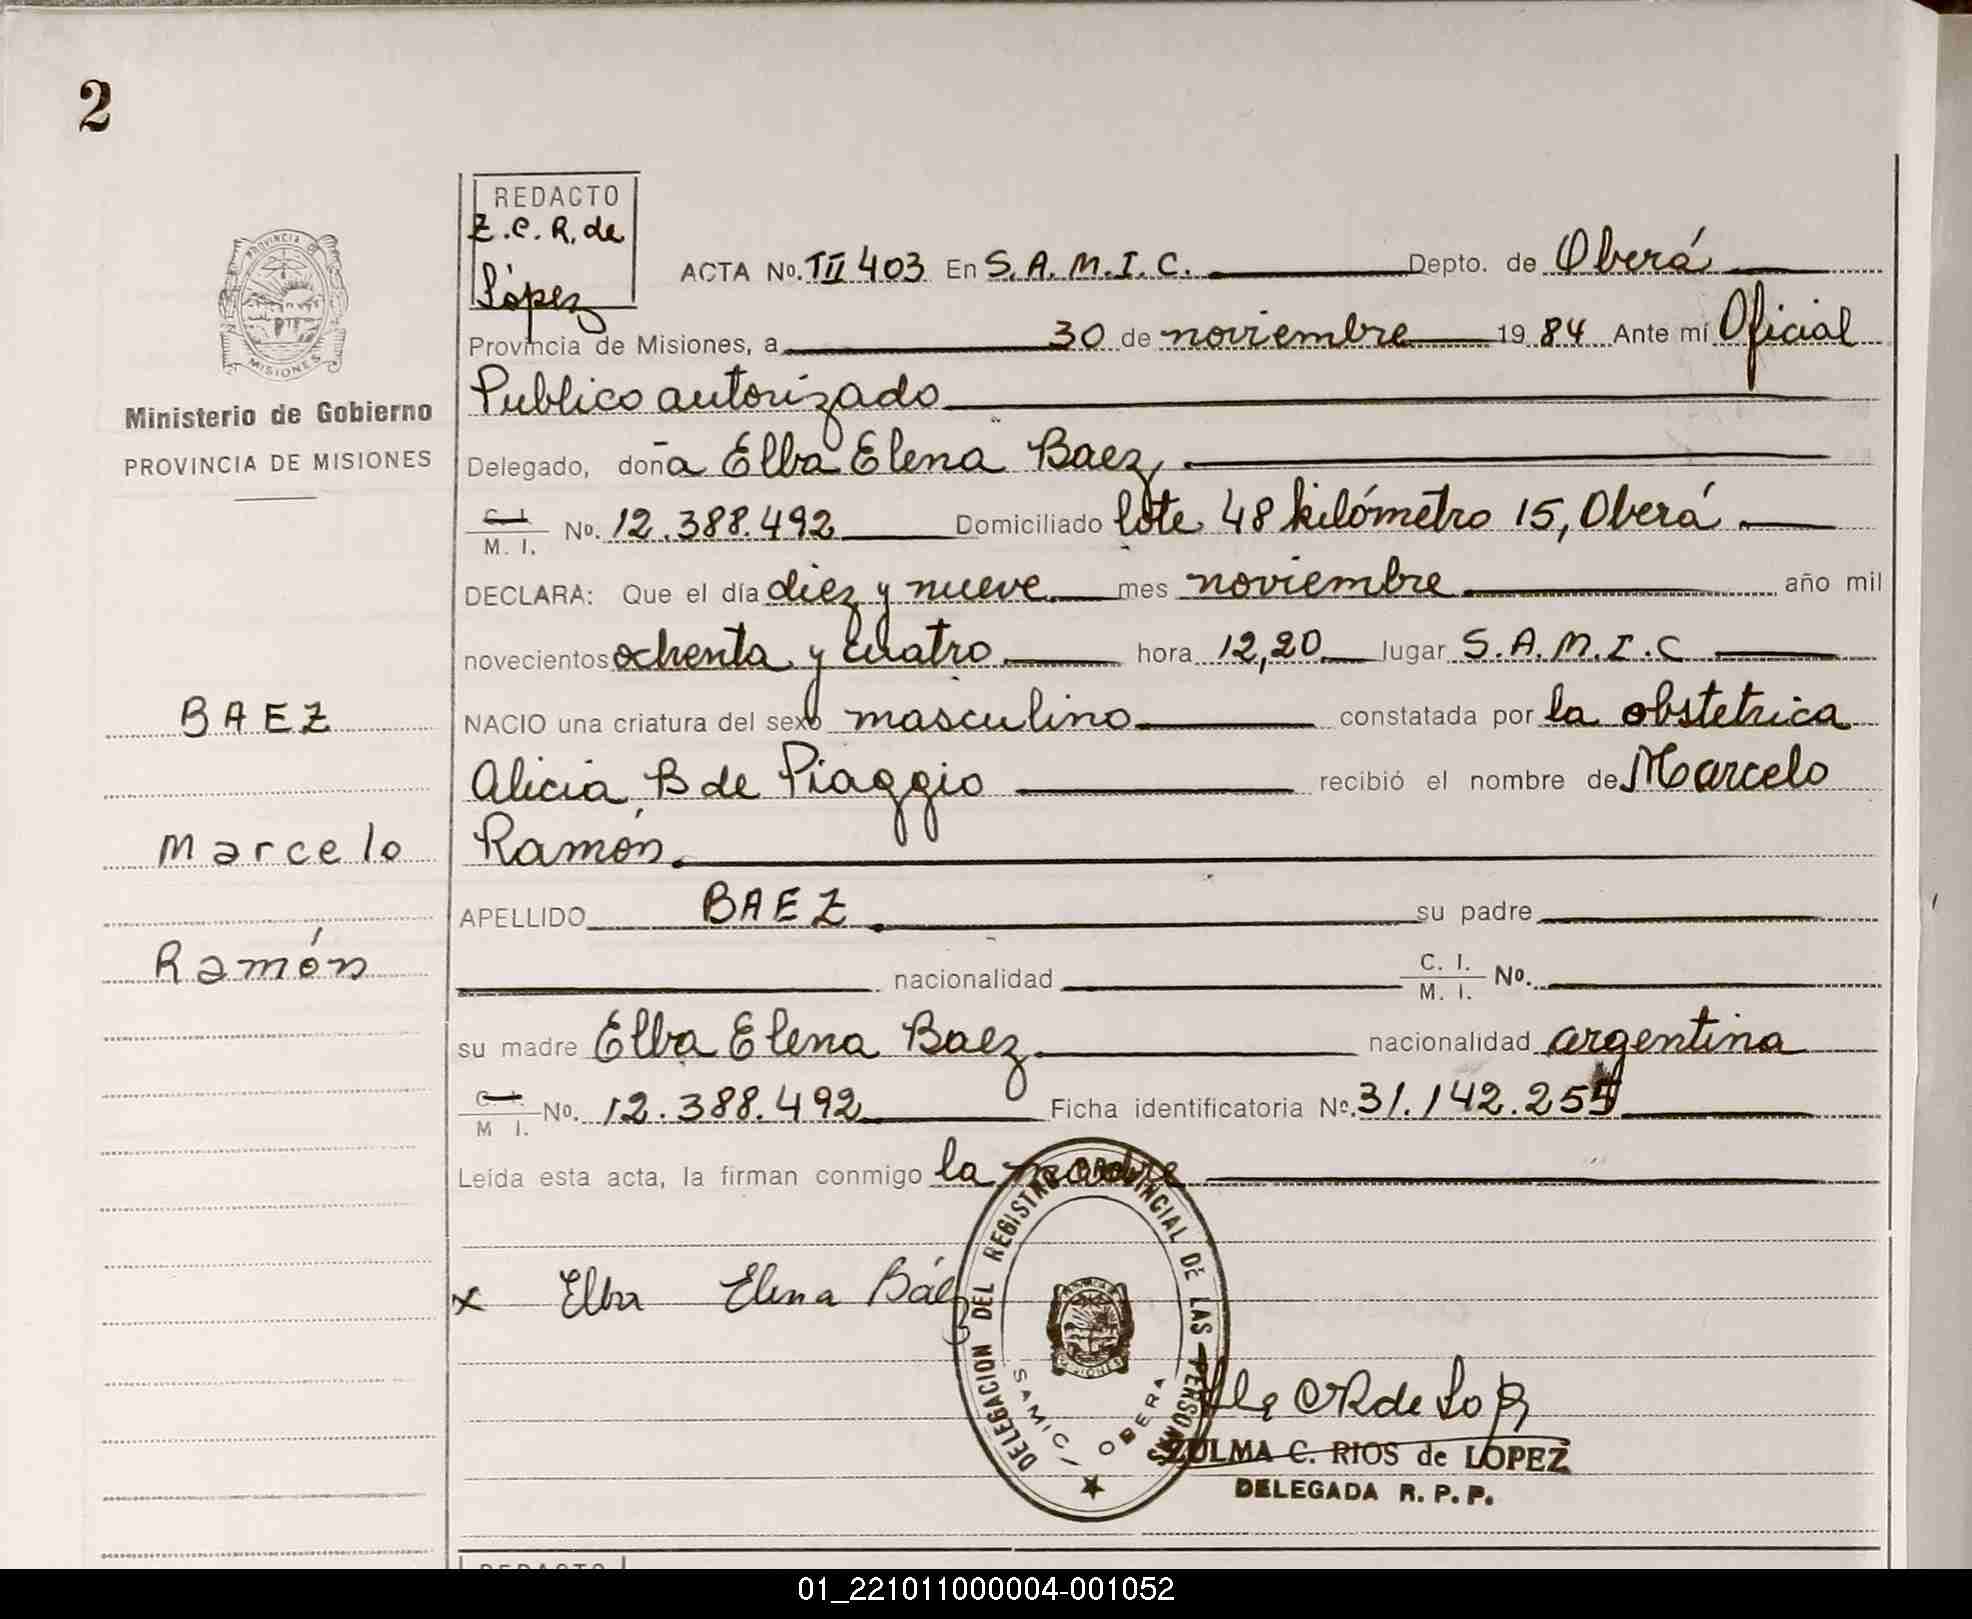 2
REDACTO
Z.C.R. de
López
PROVINCIA DE
MISIONES
Ministerio de Gobierno
PROVINCIA DE MISIONES
ACTA No. TII 403 En S.A.M.I.C. Depto. de Oberá
Provincia de Misiones, a 30 de noviembre 1984 Ante mí Oficial
Publico autorizado
Delegado, doña Elba Elena Baez,
C. I.
M. I. No. 12.388.492 Domiciliado lote 48 kilómetro 15, Oberá.
DECLARA: Que el día diez y nueve mes noviembre año mil
novecientos ochenta y cuatro hora 12,20 lugar S.A.M.I.C
BAEZ
NACIO una criatura del sexo masculino constatada por la obstetrica
Alicia B de Piaggio recibió el nombre de Marcelo
Marcelo
Ramón.
APELLIDO BAEZ. su padre
Ramón
nacionalidad C. I.
M. I. No.
su madre Elba Elena Baez. nacionalidad argentina
C. I.
M I. No. 12.388.492 Ficha identificatoria No. 31.142.255
Leída esta acta, la firman conmigo la madre
x Elba Elena Báez
DELEGACION DEL REGISTRO PROVINCIAL DE LAS PERSONAS
SAMIC / OBERA
ZULMA C. RIOS de LOPEZ
DELEGADA R. P. P.
REDACTO
01_221011000004-001052